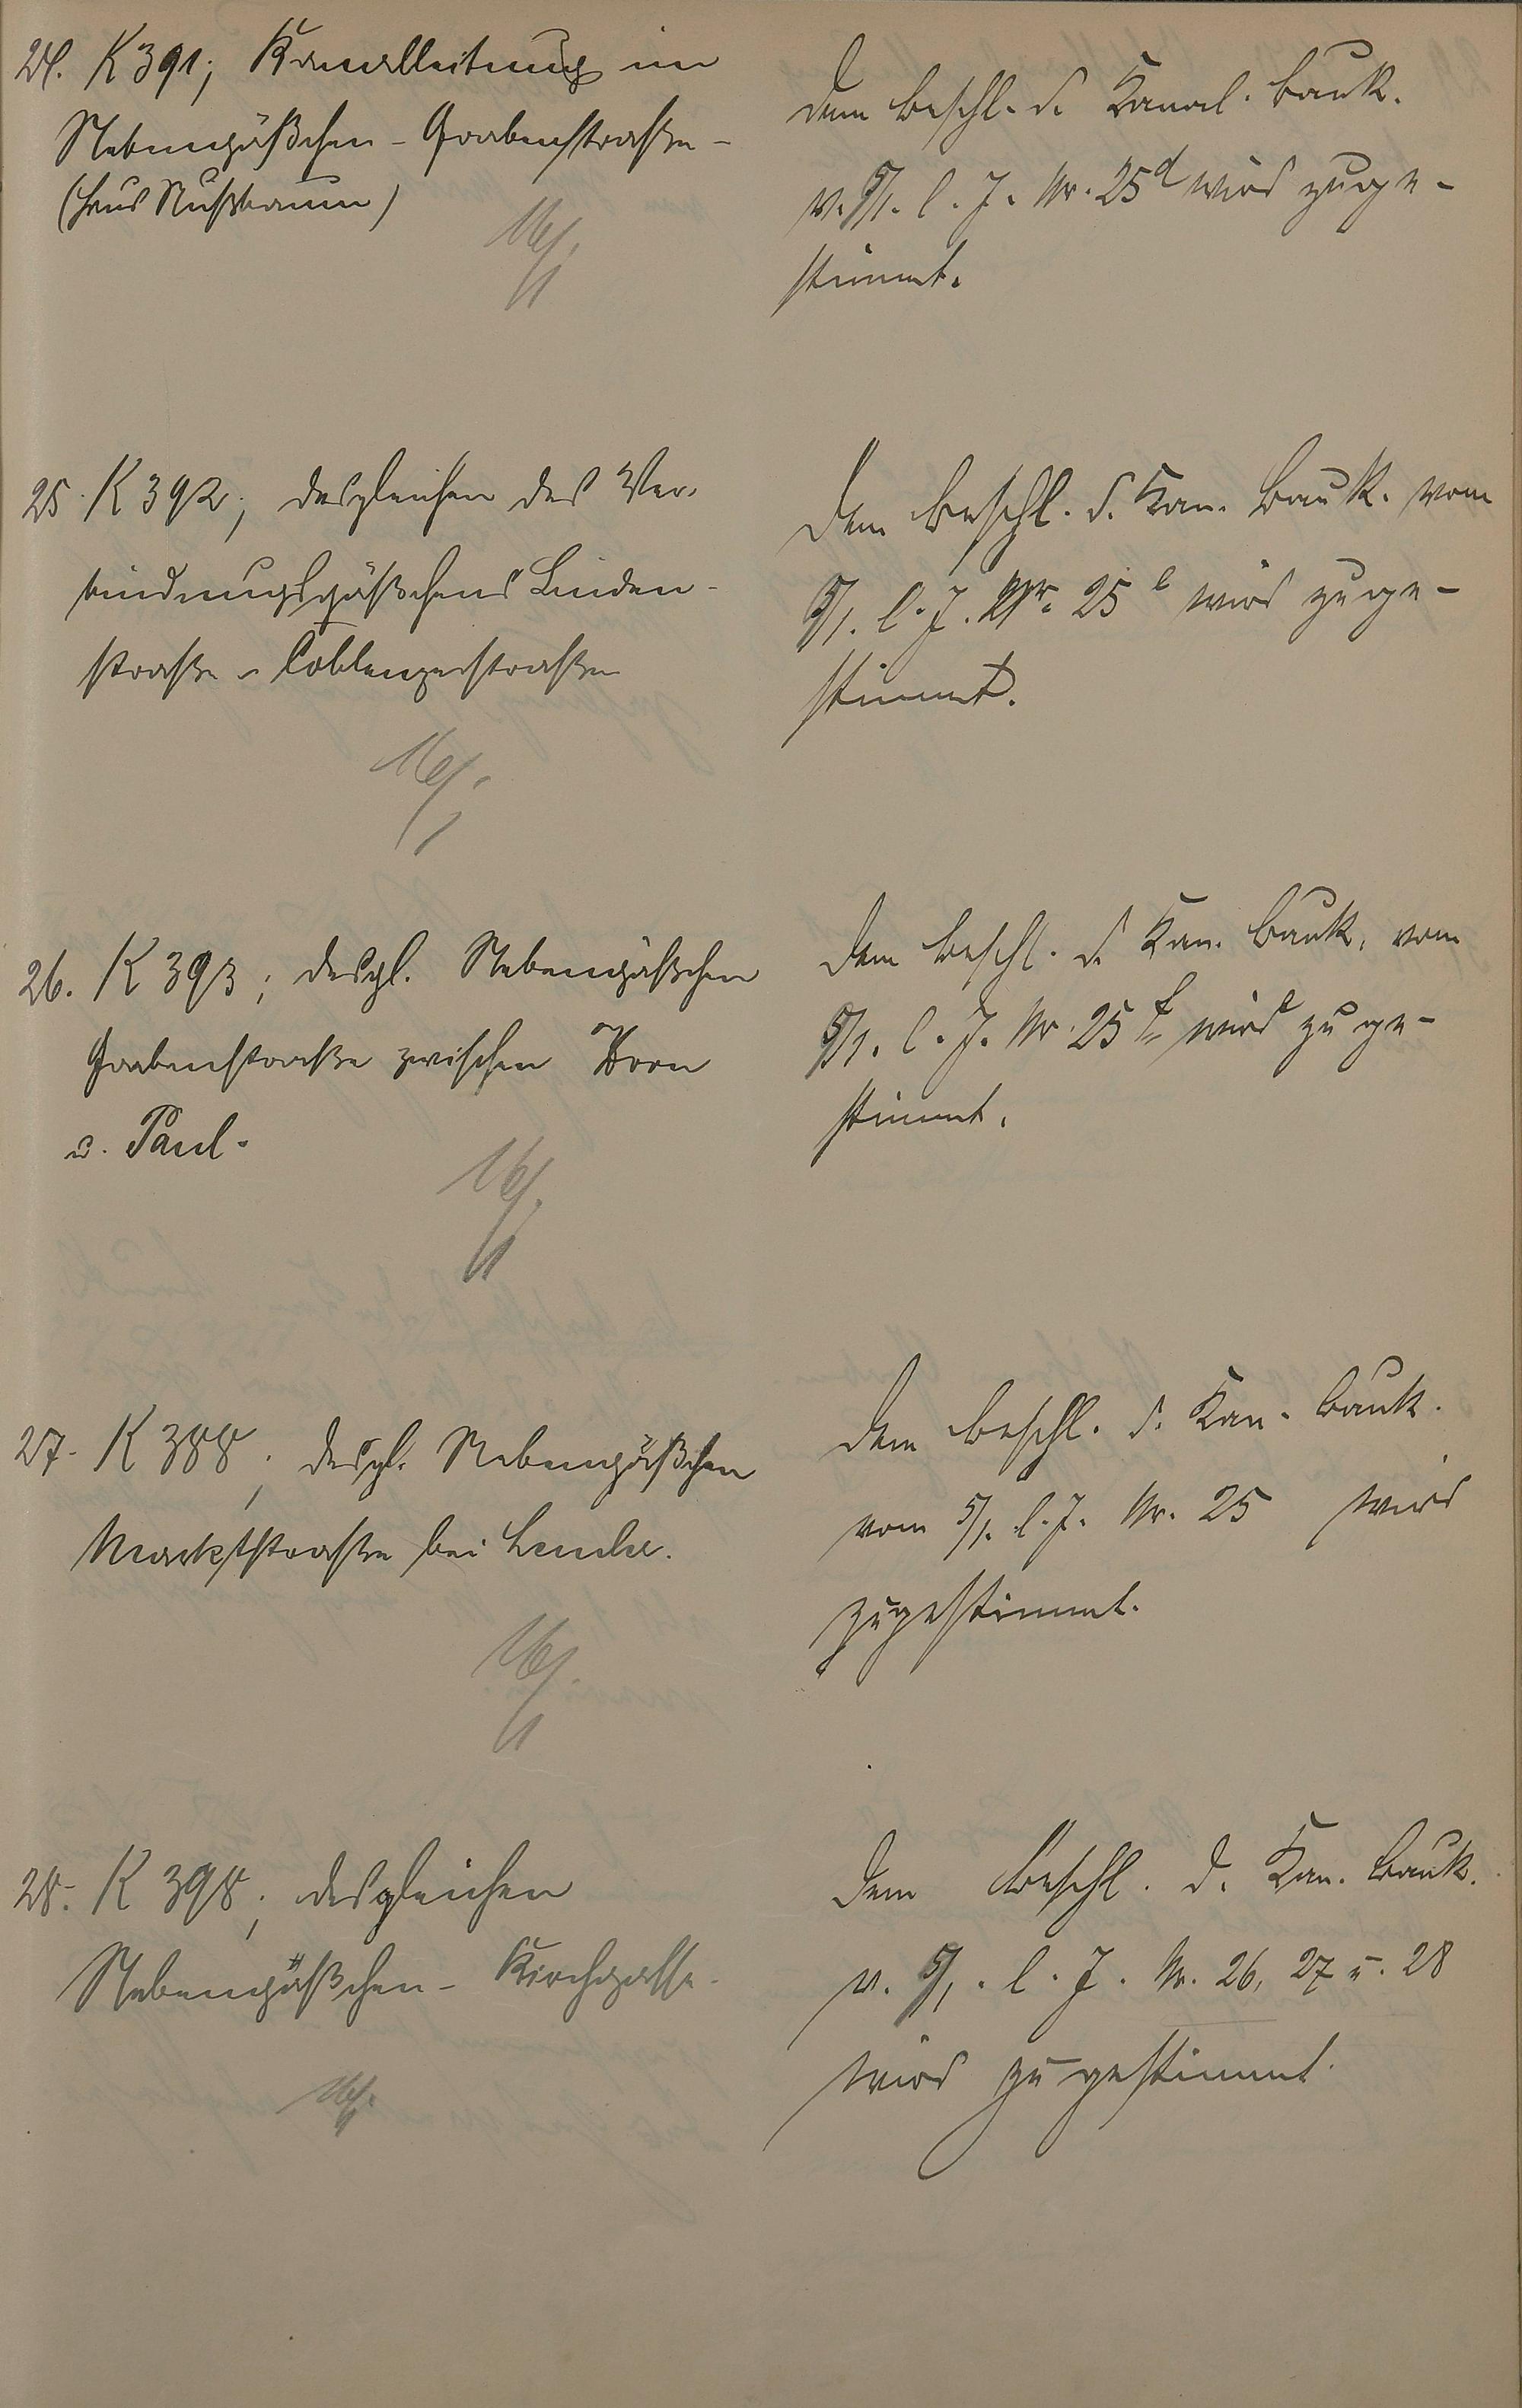 24. K 391; Kanalleitung im
Nebengäßchen - Grabenstraße -
(Haus Nußbaum)
16/1.
Dem Beschl. d. Kanal. Bauk.
v. 5/1. l. J. Nr. 25d wird zuge-
stimmt.
25. K 392; desgleichen des Ver-
bindungsgäßchens Linden-
straße - Coblenzerstraße
16/1.
Dem Beschl. d. Kan. Bauk. vom
5/1. l. J. Nr. 25e wird zuge-
stimmt.
26. K 393; desgl. Nebengäßchen
Grabenstraße zwischen Korn
u. Paul.
16/1.
Dem Beschl. d. Kan. Bauk. vom
5/1. l. J. Nr. 25f wird zuge-
stimmt.
27. K 388; desgl. Nebengäßchen
Marktstraße bei
16/1.
Dem Beschl. d. Kan. Bauk.
vom 5/1. l. J. Nr. 25 wird
zugestimmt.
28. K 398; desgleichen
Nebengäßchen - Kirchgasse.
16/1.
Dem Beschl. d. Kan. Bauk.
v. 5/1. l. J. Nr. 26, 27 u. 28
wird zugestimmt.